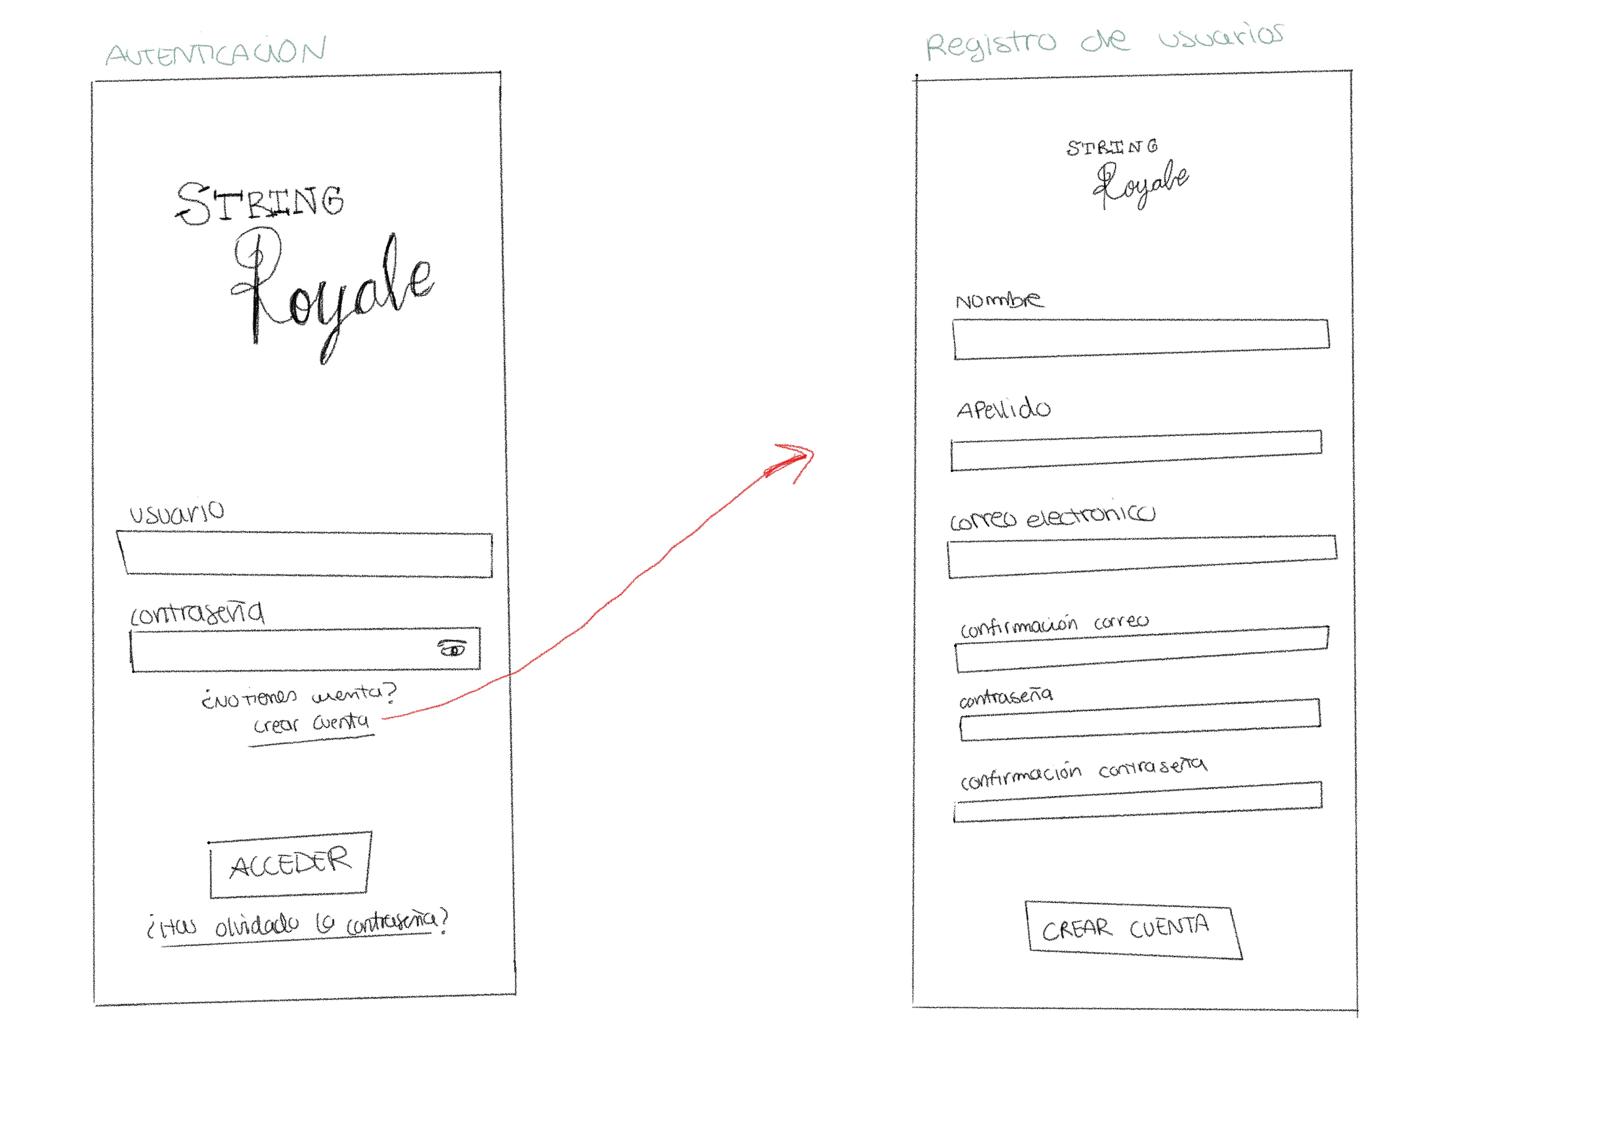 AUTENTICACIÓN
STRING
Royale
usuario
contraseña
¿No tienes cuenta?
crear cuenta
ACCEDER
¿Has olvidado la contraseña?
Registro de usuarios
STRING
Royale
Nombre
Apellido
correo electronico
confirmación correo
contraseña
confirmación contraseña
CREAR CUENTA